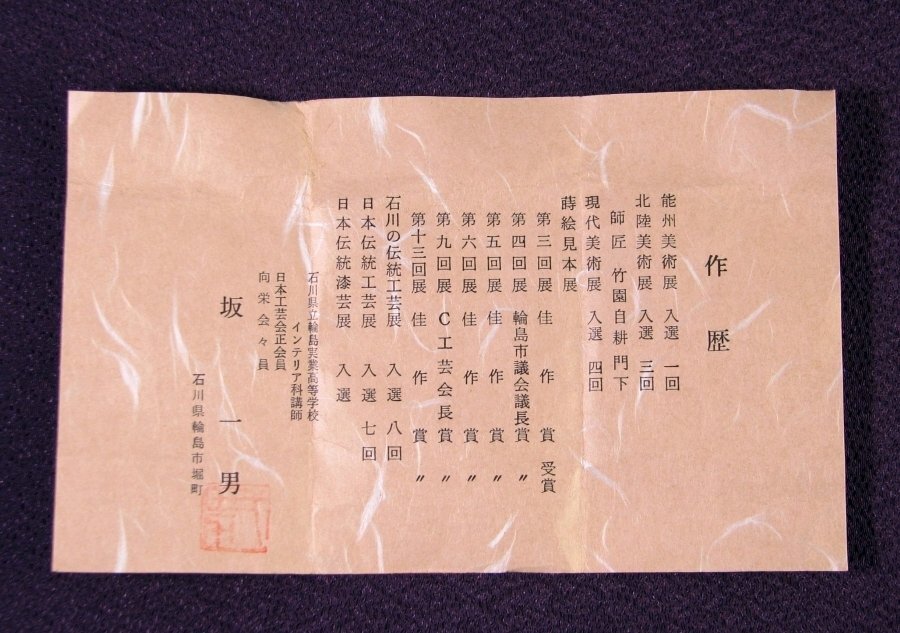 作歴
能州美術展 入選 一回
北陸美術展 入選 三回
師匠 竹園自耕 門下
現代美術展 入選 四回
蒔絵見本展
第三回展 佳作賞 受賞
第四回展 輪島市議会議長賞 〃
第五回展 佳作賞 〃
第六回展 佳作賞 〃
第九回展 C工芸会長賞 〃
第十三回展 佳作賞 〃
石川の伝統工芸展 入選 八回
日本伝統工芸展 入選 七回
日本伝統漆芸展 入選
石川県立輪島実業高等学校
インテリア科講師
日本工芸会正会員
向栄会々員
坂一男
石川県輪島市堀町